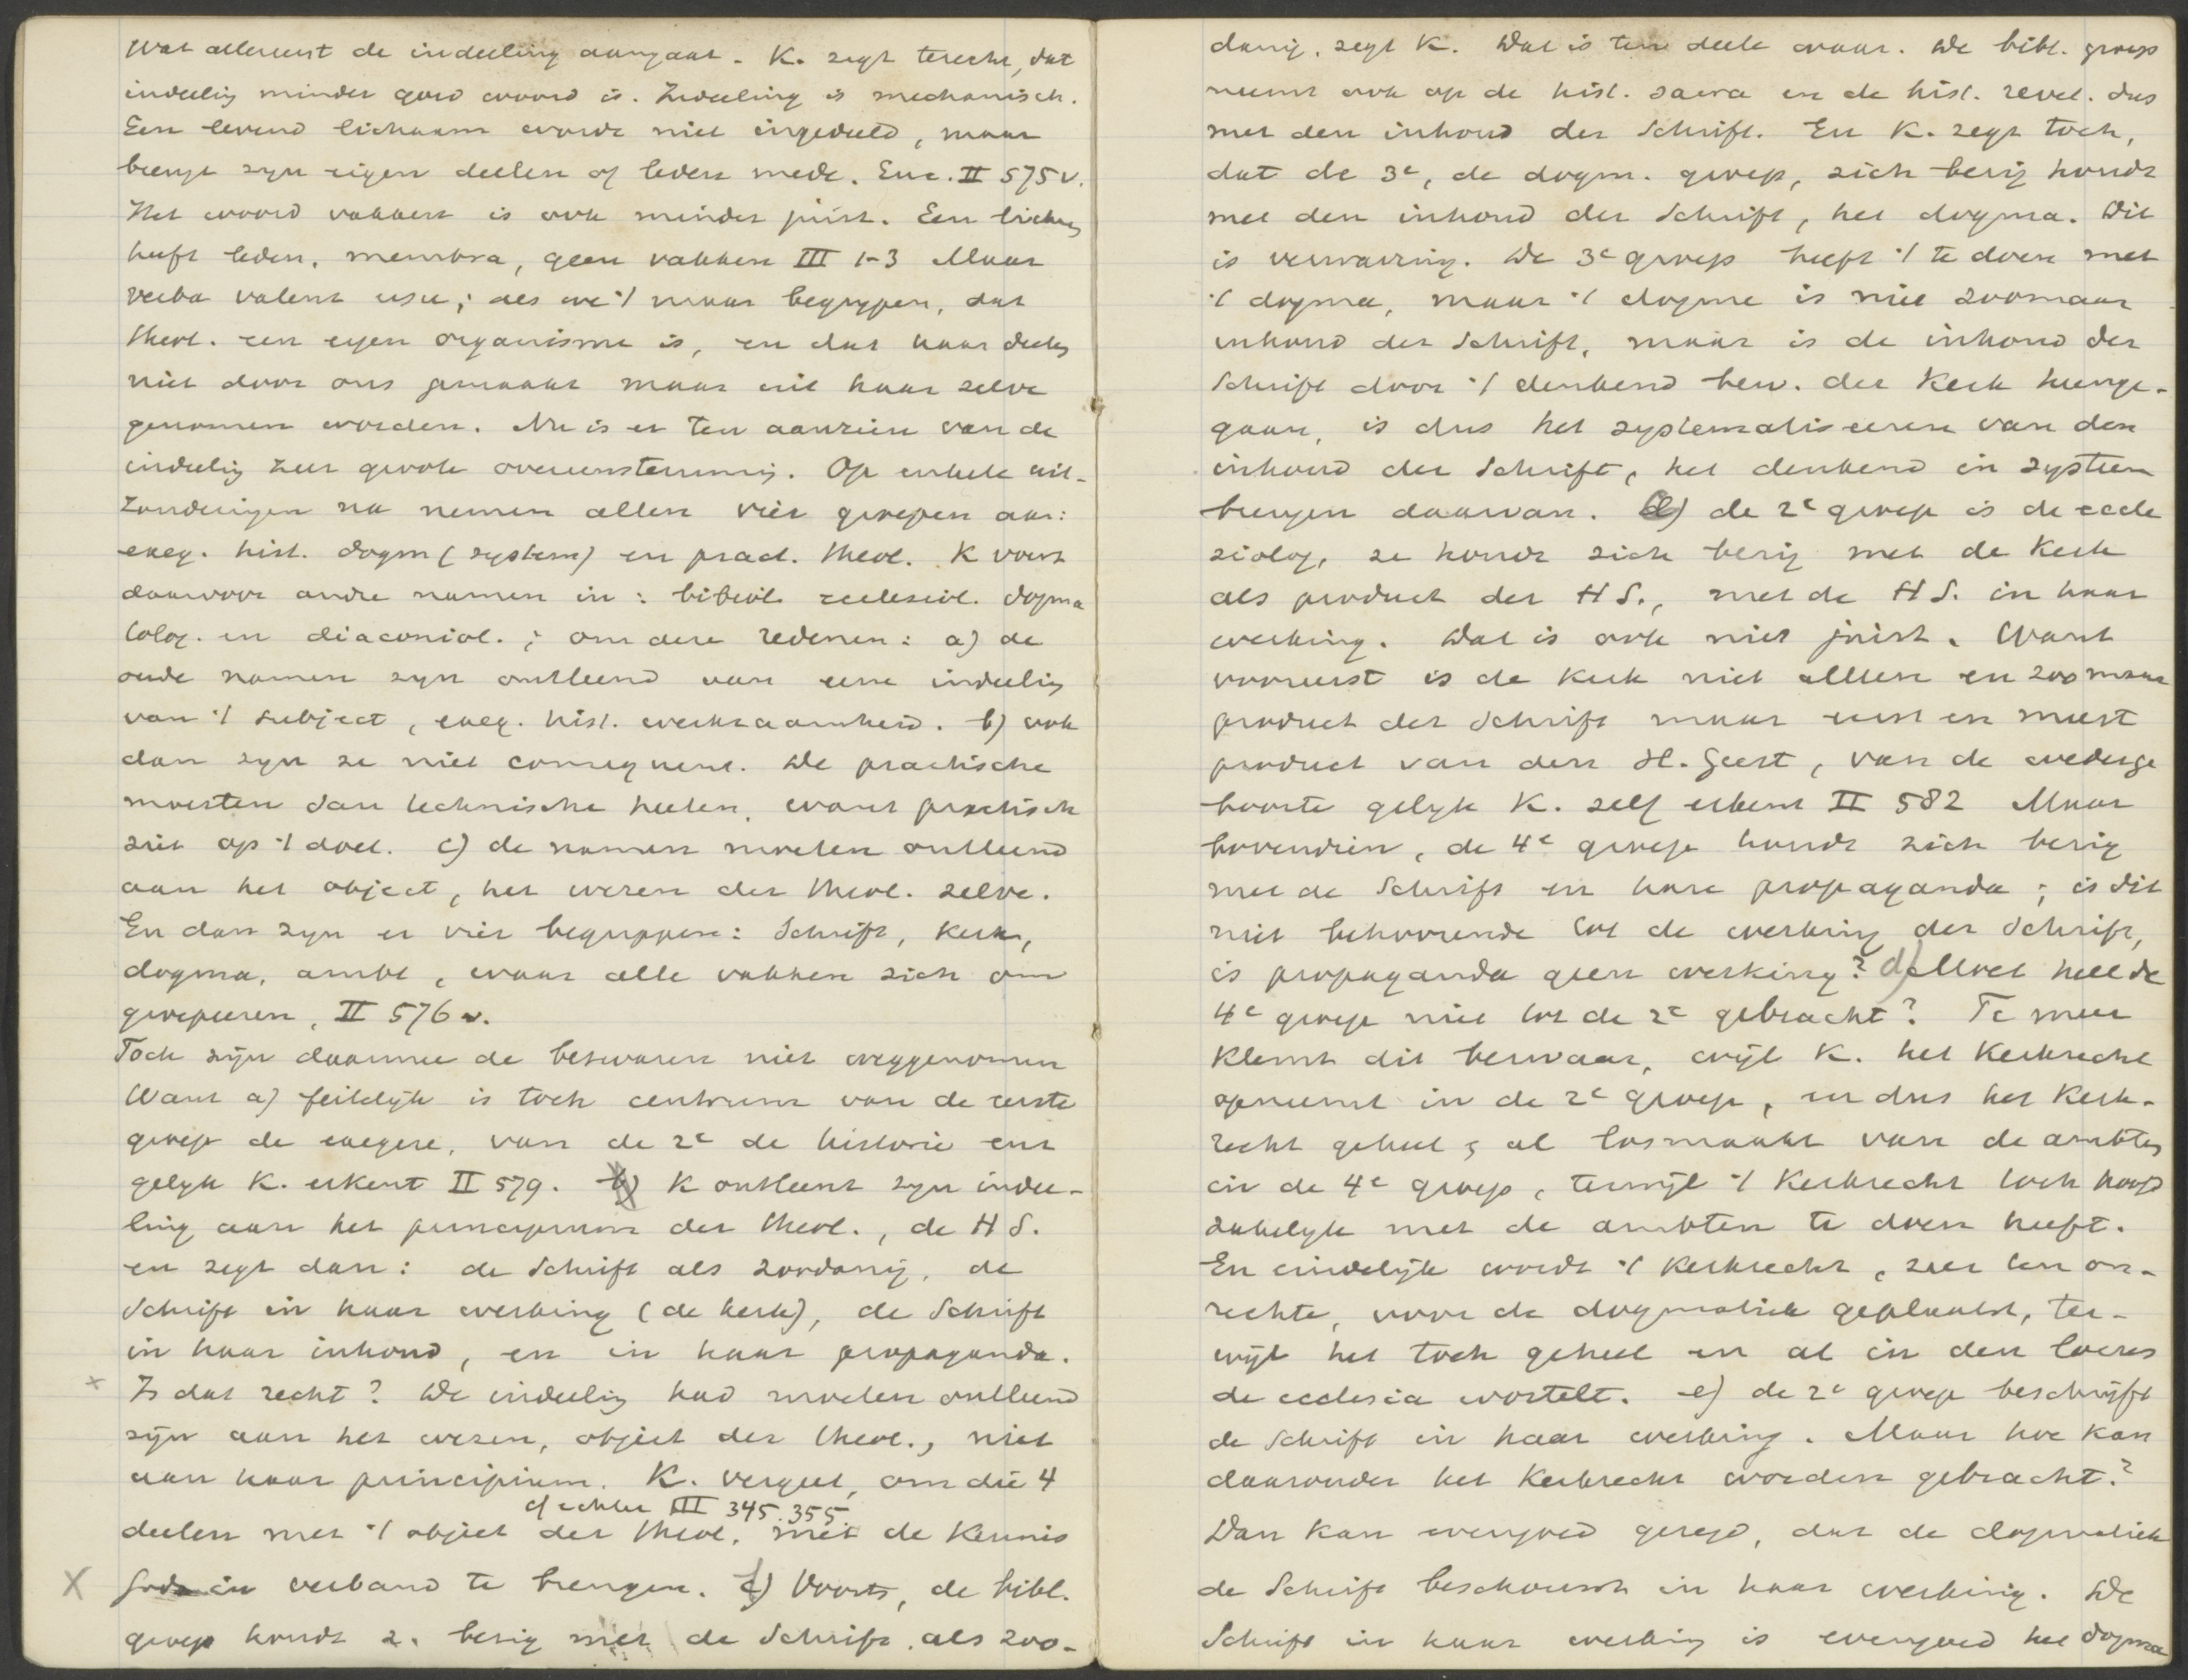 Wat allereerst de indeeling aangaat. K. zegt terecht, dat
indeelig minder goed woord is. Indeeling is mechanisch.
Een levend lichaam wordt niet ingedeeld, maar
brengt zyn eigen deelen of leden mede. Enc. II 575 v.
Het woord vakken is ook minder juist. Een licham
heeft leden, membra, geen vakken III 1-3 Maar
verba valent usu; als we 't maar begrypen, dat
theol. een eigen organisme is, en dat haar deelen
niet door ons gemaakt maar uit haar zelve
genomen worden. Nu is er ten aanzien van de
indeelig zeer groote overeenstemmig. Op enkele uit-
zonderingen na nemen allen vier groepen aan:
exeg. hist. dogm (system) en pract. theol. K voert
daarvoor andre namen in: bibliol. ecclesiol. dogma
tolog. en diaconiol.; om deze redenen: a) de
oude namen zyn ontleend aan eene indeelig
van 't subject, exeg. hist. werkzaamheid. b) ook
dan zyn ze niet consequent. De practische
moesten dan technische heeten, want practisch
ziet op 't doel. c) de namen moeten ontleend
aan het object, het wezen der theol. zelve.
En dan zyn er vier begrippen: Schrift, Kerk,
dogma, ambt, waar alle vakken zich om
groepeeren, II 576 v.
Toch zijn daarmee de bezwaren niet weggenomen
Want a) feitelijk is toch centrum van de eerste
groep de exegese, van de 2e de historie enz
gelyk K. erkent II 579. b) K ontleent zyn indee-
ling aan het principium der theol., de H S.
en zegt dan: de Schrift als zoodanig, de
Schrift in haar werking (de kerk), de Schrift
in haar inhoud, en in haar propaganda.
x Is dat recht? De indeelig had moeten ontleend
zijn aan het wezen, object der theol., niet
aan haar principium. K. vergeet, om die 4
cf echter III 345. 355
deelen met 't object der theol. met de kennis
X Gods in verband te brengen. c) Voorts, de bibl.
groep houdt z. bezig met de Schrift als zoo-
danig, zegt K. Dat is ten deele waar. De bibl. groep
neemt ook op de hist. sacra en de hist. revel. dus
met den inhoud der Schrift. En K. zegt toch,
dat de 3e, de dogm. groep, zich bezig houdt
met den inhoud der Schrift, het dogma. Dit
is verwarring. De 3e groep heeft 't te doen met
't dogma, maar 't dogma is niet zoomaar
inhoud der Schrift, maar is de inhoud der
Schrift door 't denkend bew. der Kerk heenge-
gaan, is dus het systematiseeren van den
inhoud der Schrift, het denkend in systeem
brengen daarvan. d) de 2e groep is de eccle
siolog, ze houdt zich bezig met de Kerk
als product der H S., met de H S. in haar
werking. Dat is ook niet juist. Want
vooreerst is de Kerk niet alleen en zoomaar
product der Schrift maar eerst en meest
product van den H. Geest, van de wederge
boorte gelyk K. zelf erkent II 582 Maar
bovendien, de 4e groep houdt zich bezig
met de Schrift en hare propaganda; is dit
niet behoorende tot de werking der Schrift,
is propaganda geen werking? d) Moet heel de
4e groep niet tot de 2e gebracht? Te meer
klemt dit bezwaar, wijl K. het Kerkrecht
opneemt in de 2e groep, en dus het Kerk-
recht geheel & al losmaakt van de ambten
in de 4e groep, terwijl 't Kerkrecht toch hoofd
zakelyk met de ambten te doen heeft.
En eindelijk wordt 't Kerkrecht, zeer ten on-
rechte, voor de dogmatiek geplaatst, ter-
wijl het toch geheel en al in den locus
de ecclesia wortelt. e) de 2e groep beschrijft
de Schrift in haar werking. Maar hoe kan
daaronder het Kerkrecht worden gebracht?
Dan kan evengoed gezegd, dat de dogmatiek
de Schrift beschouwt in haar werking. De
Schrift in haar werking is evengoed het dogma